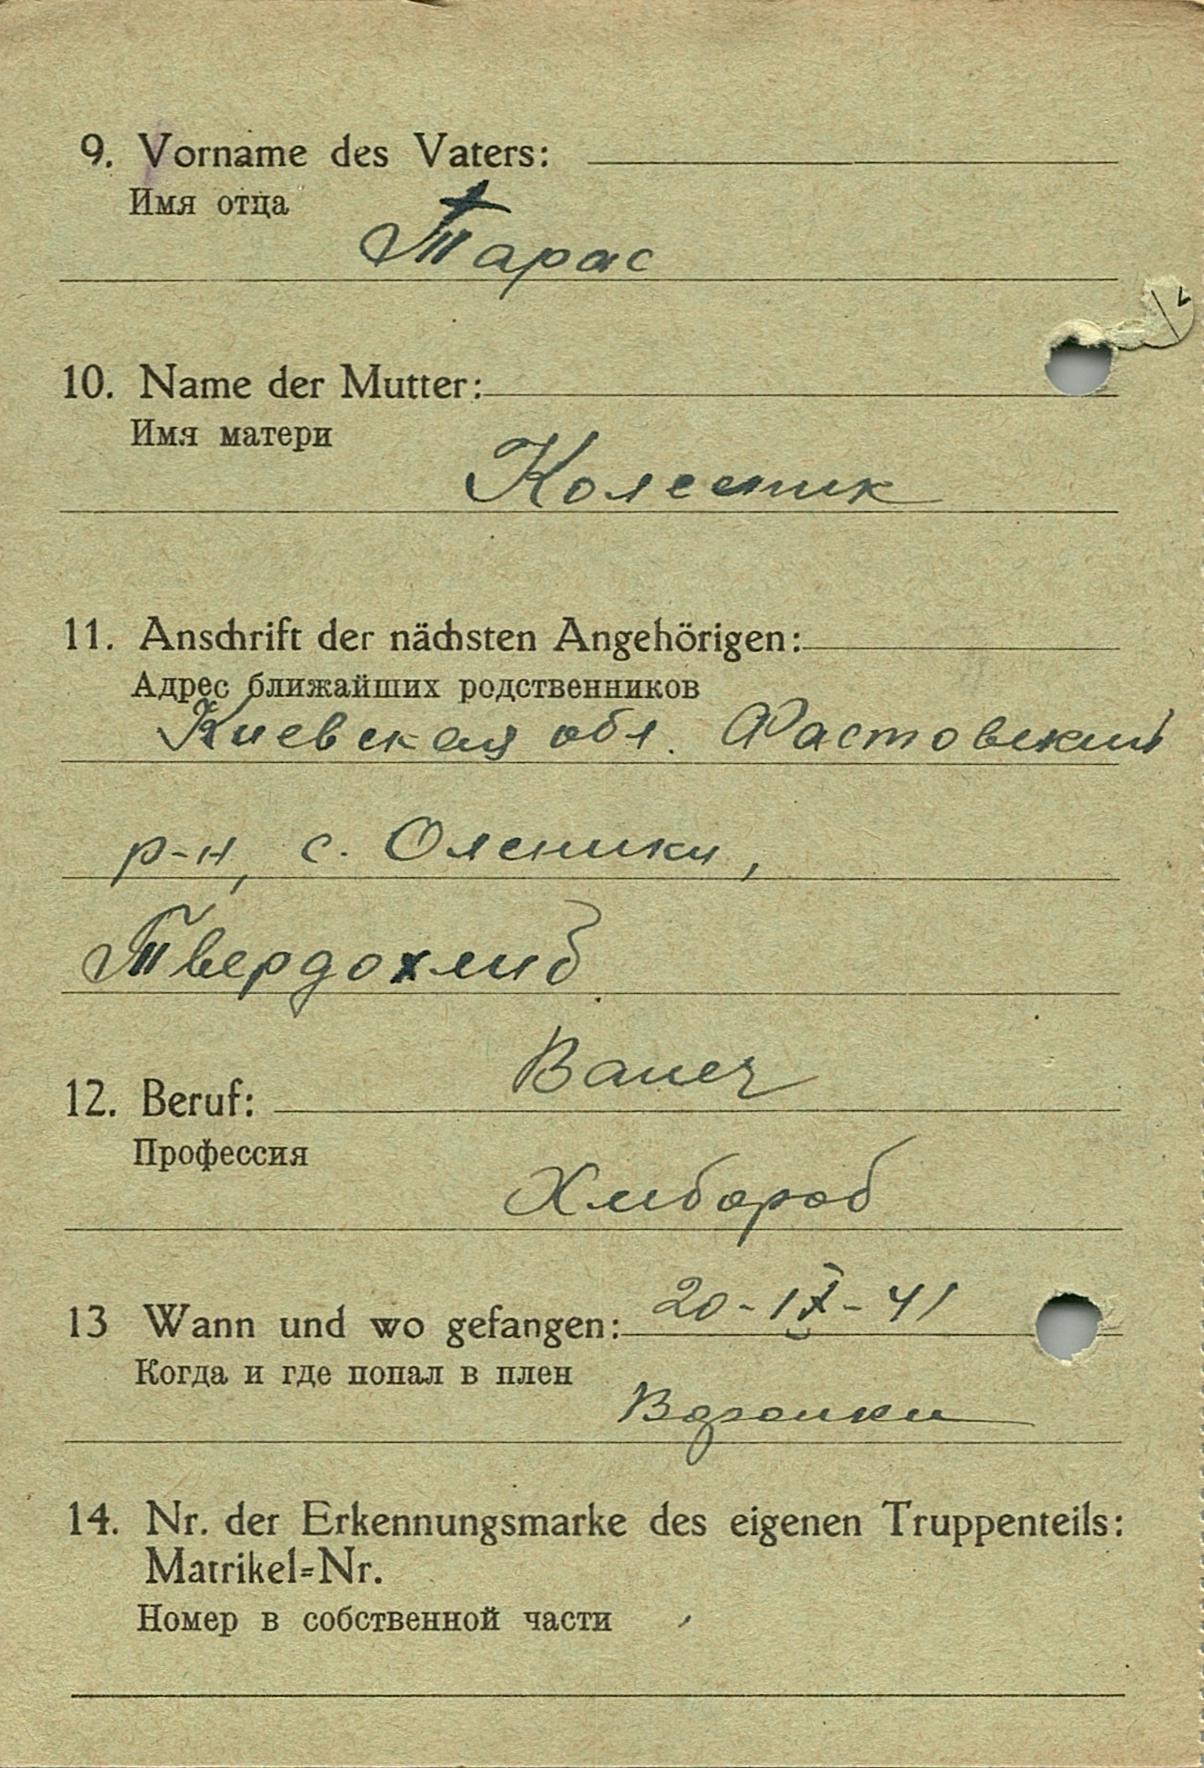 9. Vorname des Vaters:
Имя отца
Тарас
10. Name der Mutter:
Имя матери
Колесник
11. Anschrift der nächsten Angehörigen:
Адрес ближайших родственников
Киевская обл. Фастовский
р-н, с. Оленики,
Твердохлиб
Bauer
12. Beruf:
Профессия
Хлибороб
20-IX-41
13 Wann und wo gefangen:
Когда и где попал в плен
14. Nr. der Erkennungsmarke des eigenen Truppenteils:
Matrikel=Nr.
Номер в собственной части